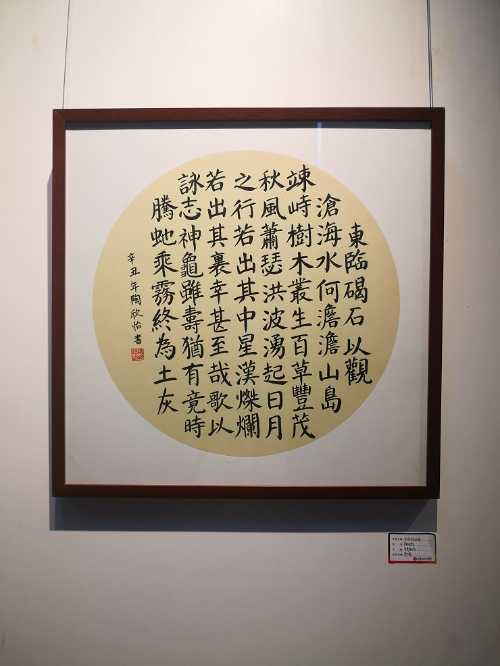 東臨碣石以觀
滄海水何澹澹山島
竦峙樹木叢生百草豐茂
秋風蕭瑟洪波湧起日月
之行若出其中星漢燦爛
若出其裏幸甚至哉歌以
詠志神龜雖壽猶有竟時
騰虵乘霧終為土灰
辛丑年陶欣怡書